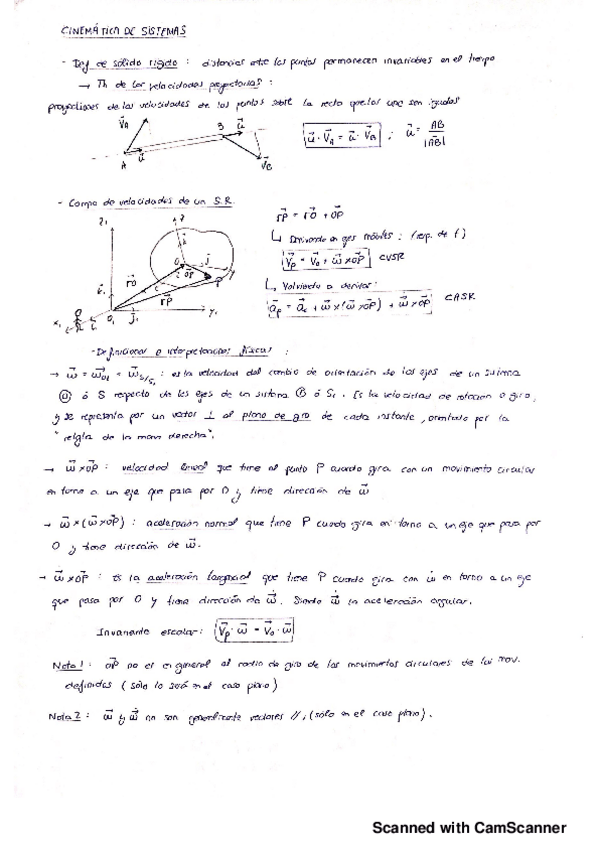 CINEMÁTICA DE SISTEMAS
- Def de sólido rígido : distancias entre los puntos permanecen invariables en el tiempo
→ Th de las velocidades proyectadas :
proyecciones de las velocidades de los puntos sobre la recta que los une son iguales
V⃗A
A
u⃗
B
u⃗
V⃗B
u⃗ · V⃗A = u⃗ · V⃗B ; u⃗ = AB / |AB|
- Campo de velocidades de un S.R.
z1
z
O
OP
P
rO
rP
x1
O1
y1
j1
r⃗P = r⃗O + O⃗P
↳ Derivando en ejes móviles : (resp. de t)
V⃗p = V⃗o + ω⃗ × O⃗P CVSR
↳ Volviendo a derivar:
a⃗p = a⃗o + ω⃗ × (ω⃗ × O⃗P) + ω⃗̇ × O⃗P CASR
- Definiciones e interpretaciones físicas :
→ ω⃗ = ω⃗01 = ω⃗S/S1 : es la velocidad del cambio de orientación de los ejes de un sistema
⓪ ó S respecto de los ejes de un sistema ① ó S1. Es la velocidad de rotación o giro,
y se representa por un vector ⊥ al plano de giro de cada instante, orientado por la
"regla de la mano derecha".
→ ω⃗ × O⃗P : velocidad lineal que tiene el punto P cuando gira con un movimiento circular
en torno a un eje que pasa por O y tiene dirección de ω⃗
→ ω⃗ × (ω⃗ × O⃗P) : aceleración normal que tiene P cuando gira en torno a un eje que pasa por
O y tiene dirección de ω⃗.
→ ω⃗̇ × O⃗P : Es la aceleración tangencial que tiene P cuando gira con ω̇ en torno a un eje
que pasa por O y tiene dirección de ω⃗̇. Siendo ω⃗̇ la aceleración angular.
Invariante escalar: V⃗p · ω⃗ = V⃗o · ω⃗
Nota 1 : O⃗P no es en general el radio de giro de los movimientos circulares de las mov.
definidos (sólo lo será en el caso plano)
Nota 2 : ω⃗ y ω⃗̇ no son generalmente vectores //, (sólo en el caso plano).
Scanned with CamScanner